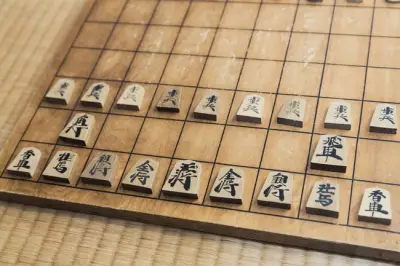 歩兵 歩兵 歩兵 歩兵 歩兵 歩兵 歩兵 歩兵 歩兵
角行 飛車
香車 桂馬 銀将 金将 金将 銀将 桂馬 香車